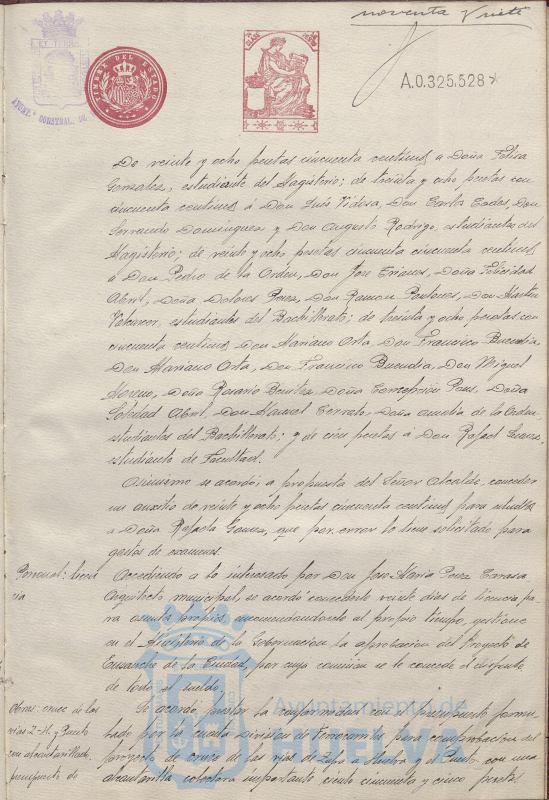 noventa y siete
TIMBRE DEL ESTADO
A.0.325.528
De veinte y ocho pesetas cincuenta centimos a Doña Felisa
Gonzalez, estudiante del Magisterio; de treinta y ocho pesetas con
cincuenta centimos á Don Luis Videsa, Don Carlos Eades, Don
Servando Dominguez y Don Augusto Rodrigo, estudiantes del
Magisterio; de veinte y ocho pesetas cincuenta cincuenta centimos
a Don Pedro de la Orden, Don Jose Eriana, Doña Felicidad
Abril, Doña Dolores Pousa, Don Ramon Pontones, Don Martin
Valcarcer, estudiantes del Bachillerato; de treinta y ocho pesetas con
cincuenta centimos, Don Mariano Orta, Don Francisco Buendia,
Don Mariano Orta, Don Francisco Buendia, Don Miguel
Moreno, Doña Rosario Benitez, Doña Concepción Pous, Doña
Soledad Abril, Don Manuel Serrato, Doña Amelia de la Orden,
estudiantes del Bachillerato; y de cien pesetas á Don Rafael
estudiante de Facultad.
Asimismo se acordó, a propuesta del Señor Alcalde, conceder
un auxilio de veinte y ocho pesetas cincuenta centimos para estudios
a Doña Rafaela Gomez, que por error lo tiene solicitado para
gastos de examenes.
Personal: licencia
Accediendo a lo interesado por Don Jose Maria Perez Carasa
Arquitecto municipal, se acordó concederle veinte dias de licencia pa-
ra asuntos propios, encomendandole al propio tiempo, gestione
en el Ministerio de la Gobernacion la aprobacion del Proyecto de
Ensanche de la Ciudad, por cuya comision se le concede el disfrute
de todo el sueldo.
Obras: cruce de las
vias Z-H. y Puerto
con alcantarillado,
presupuesto de
Se acordó prestar la conformidad con el presupuesto formu-
lado por la cuarta Division de Ferrocarriles para comprobacion del
proyecto de cruce de las vias de Zafra a Huelva y el Puerto con una
alcantarilla colectora importante ciento cincuenta y cinco pesetas
Ayuntamiento de
HUELVA